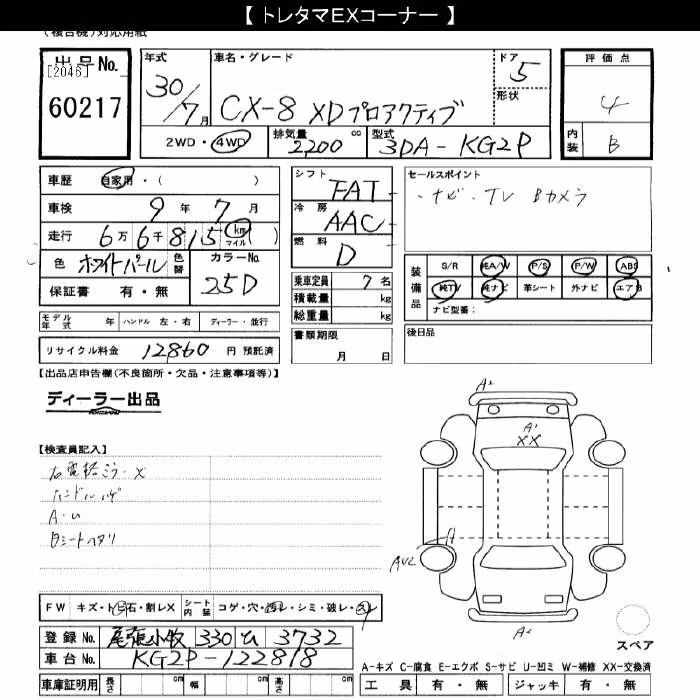 【 トレタマEXコーナー 】
(複合機)対応用紙
出品No.
[2046]
60217
年式
30/7月
車名・グレード
CX-8 XDプロアクティブ
ドア
5
形状
2WD・4WD
排気量
2200 cc
型式
3DA-KG2P
評価点
4
内装
B
車歴 自家用・( )
車検 9年 7月
走行 6万6千815 km マイル ( )
色 ホワイトパール 色替
カラーNo.
25D
保証書 有・無
シフト
FAT
冷房
AAC
燃料
D
セールスポイント
・ナビ・TV Bカメラ
装備品
S/R 純A/W P/S P/W ABS
純TV 純ナビ 革シート 外ナビ エアB
ナビ型番:
乗車定員 7名
積載量 kg
総重量 kg
モデル年式 年 ハンドル 左・右 ディーラー・並行
書類期限
月 日
後日品
リサイクル料金 12860 円 預託済
【出品店申告欄(不良箇所・欠品・注意事項等)】
ディーラー出品
【検査員記入】
右電格ミラーX
ハンドルハゲ
A・U
Dシートヘタリ
A²
A¹
XX
A
AU2
A²
スペア
FW キズ・トビ石・割レX シート内装 コゲ・穴・汚レ・シミ・破レ・
登録No. 尾張小牧 330 ム 3732
車台No. KG2P-122818
車庫証明用 長さ cm 幅 cm 高さ cm
A-キズ C-腐食 E-エクボ S-サビ U-凹ミ W-補修 XX-交換済
工具 有・無 ジャッキ 有・無